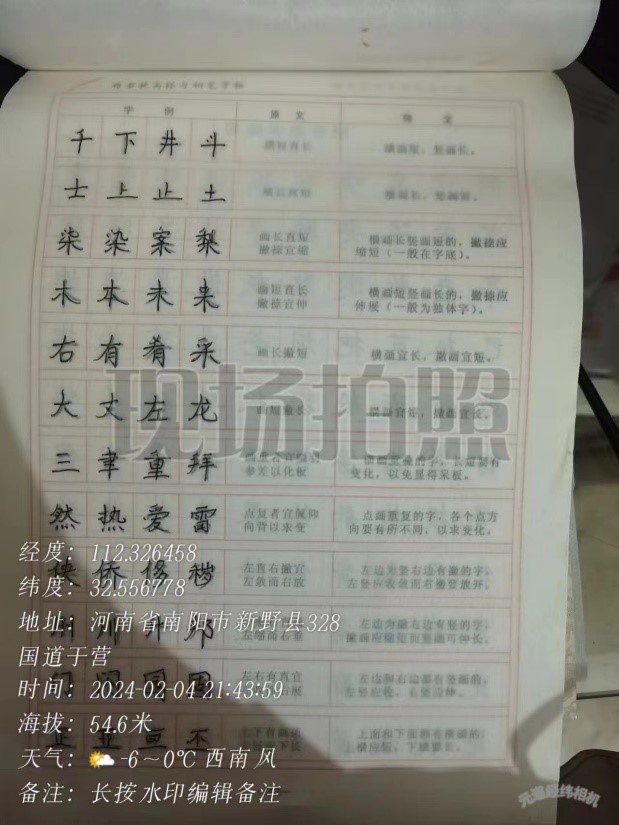 字例 原文 释文
千 下 井 斗 横短直长 横画短，竖画长。
士 上 止 土 横长直短 横画长，竖画短。
柒 染 案 梨 画长直短 撇捺宜缩 横画长竖画短的，撇捺应缩短（一般在字底）。
木 本 未 来 画短直长 撇捺宜伸 横画短竖画长的，撇捺应伸展（一般为独体字）。
右 有 肴 采 画长撇短 横画宜长，撇画宜短。
大 丈 左 龙 画短撇长 横画宜短，撇画宜长。
三 聿 重 拜 参差以化板 变化，以免显得呆板。
然 热 爱 雷 点复者宜俯仰 向背以求变 点画重复的字，各个点方向要有所不同，以求变化。
侠 侨 修 左直右撇宜 左敛而右放 左边为竖右边有撇的字，左竖应收敛而右撇要放开。
左边为撇右边有竖的字，
门 闩 圆 周 左右有直宜 左边和右边都有竖画的，左竖应收，右竖应伸。
正 亚 画 丕 上面和下面都有横画的，上横宜短，下横要长。
现场拍照
经度：112.326458
纬度：32.556778
地址：河南省南阳市新野县328
国道于营
时间：2024-02-04 21:43:59
海拔：54.6米
天气：-6～0℃ 西南风
备注：长按水印编辑备注
元道经纬相机